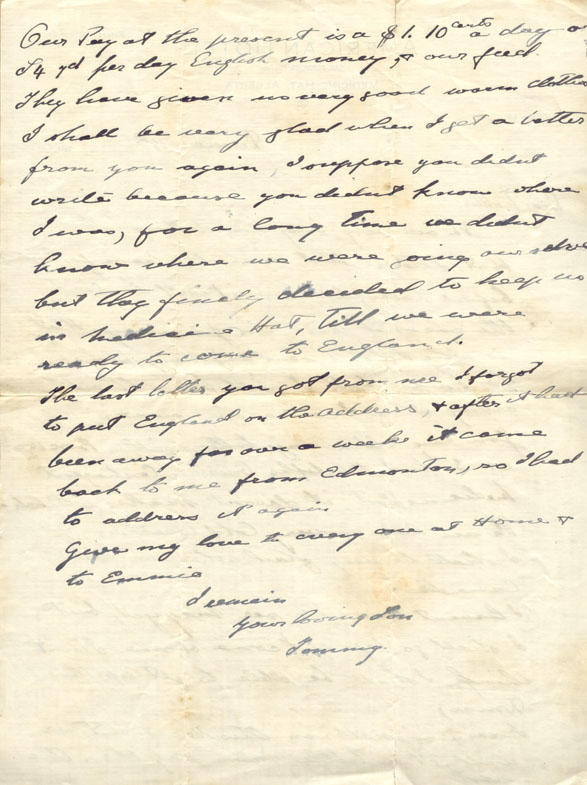 Our Pay at the present is a $1.10 cents a day or
per day English money, & our feed.
They have given us very good warm clothes
I shall be very glad when I get a letter
from you again, I suppose you didnt
write because you didnt know where
I was, for a long time we didnt
know where we were going ourselves
but they finely decided to keep us
in Medicine Hat, till we were
ready to come to England.
The last letter you got from me I forgot
to put England on the address, & after it had
been away for over a weeke it came
back to me from Edmonton, so I had
to address it again
Give my love to every one at Home &
to Emmie
I remain
Your loving Son
Tommy.